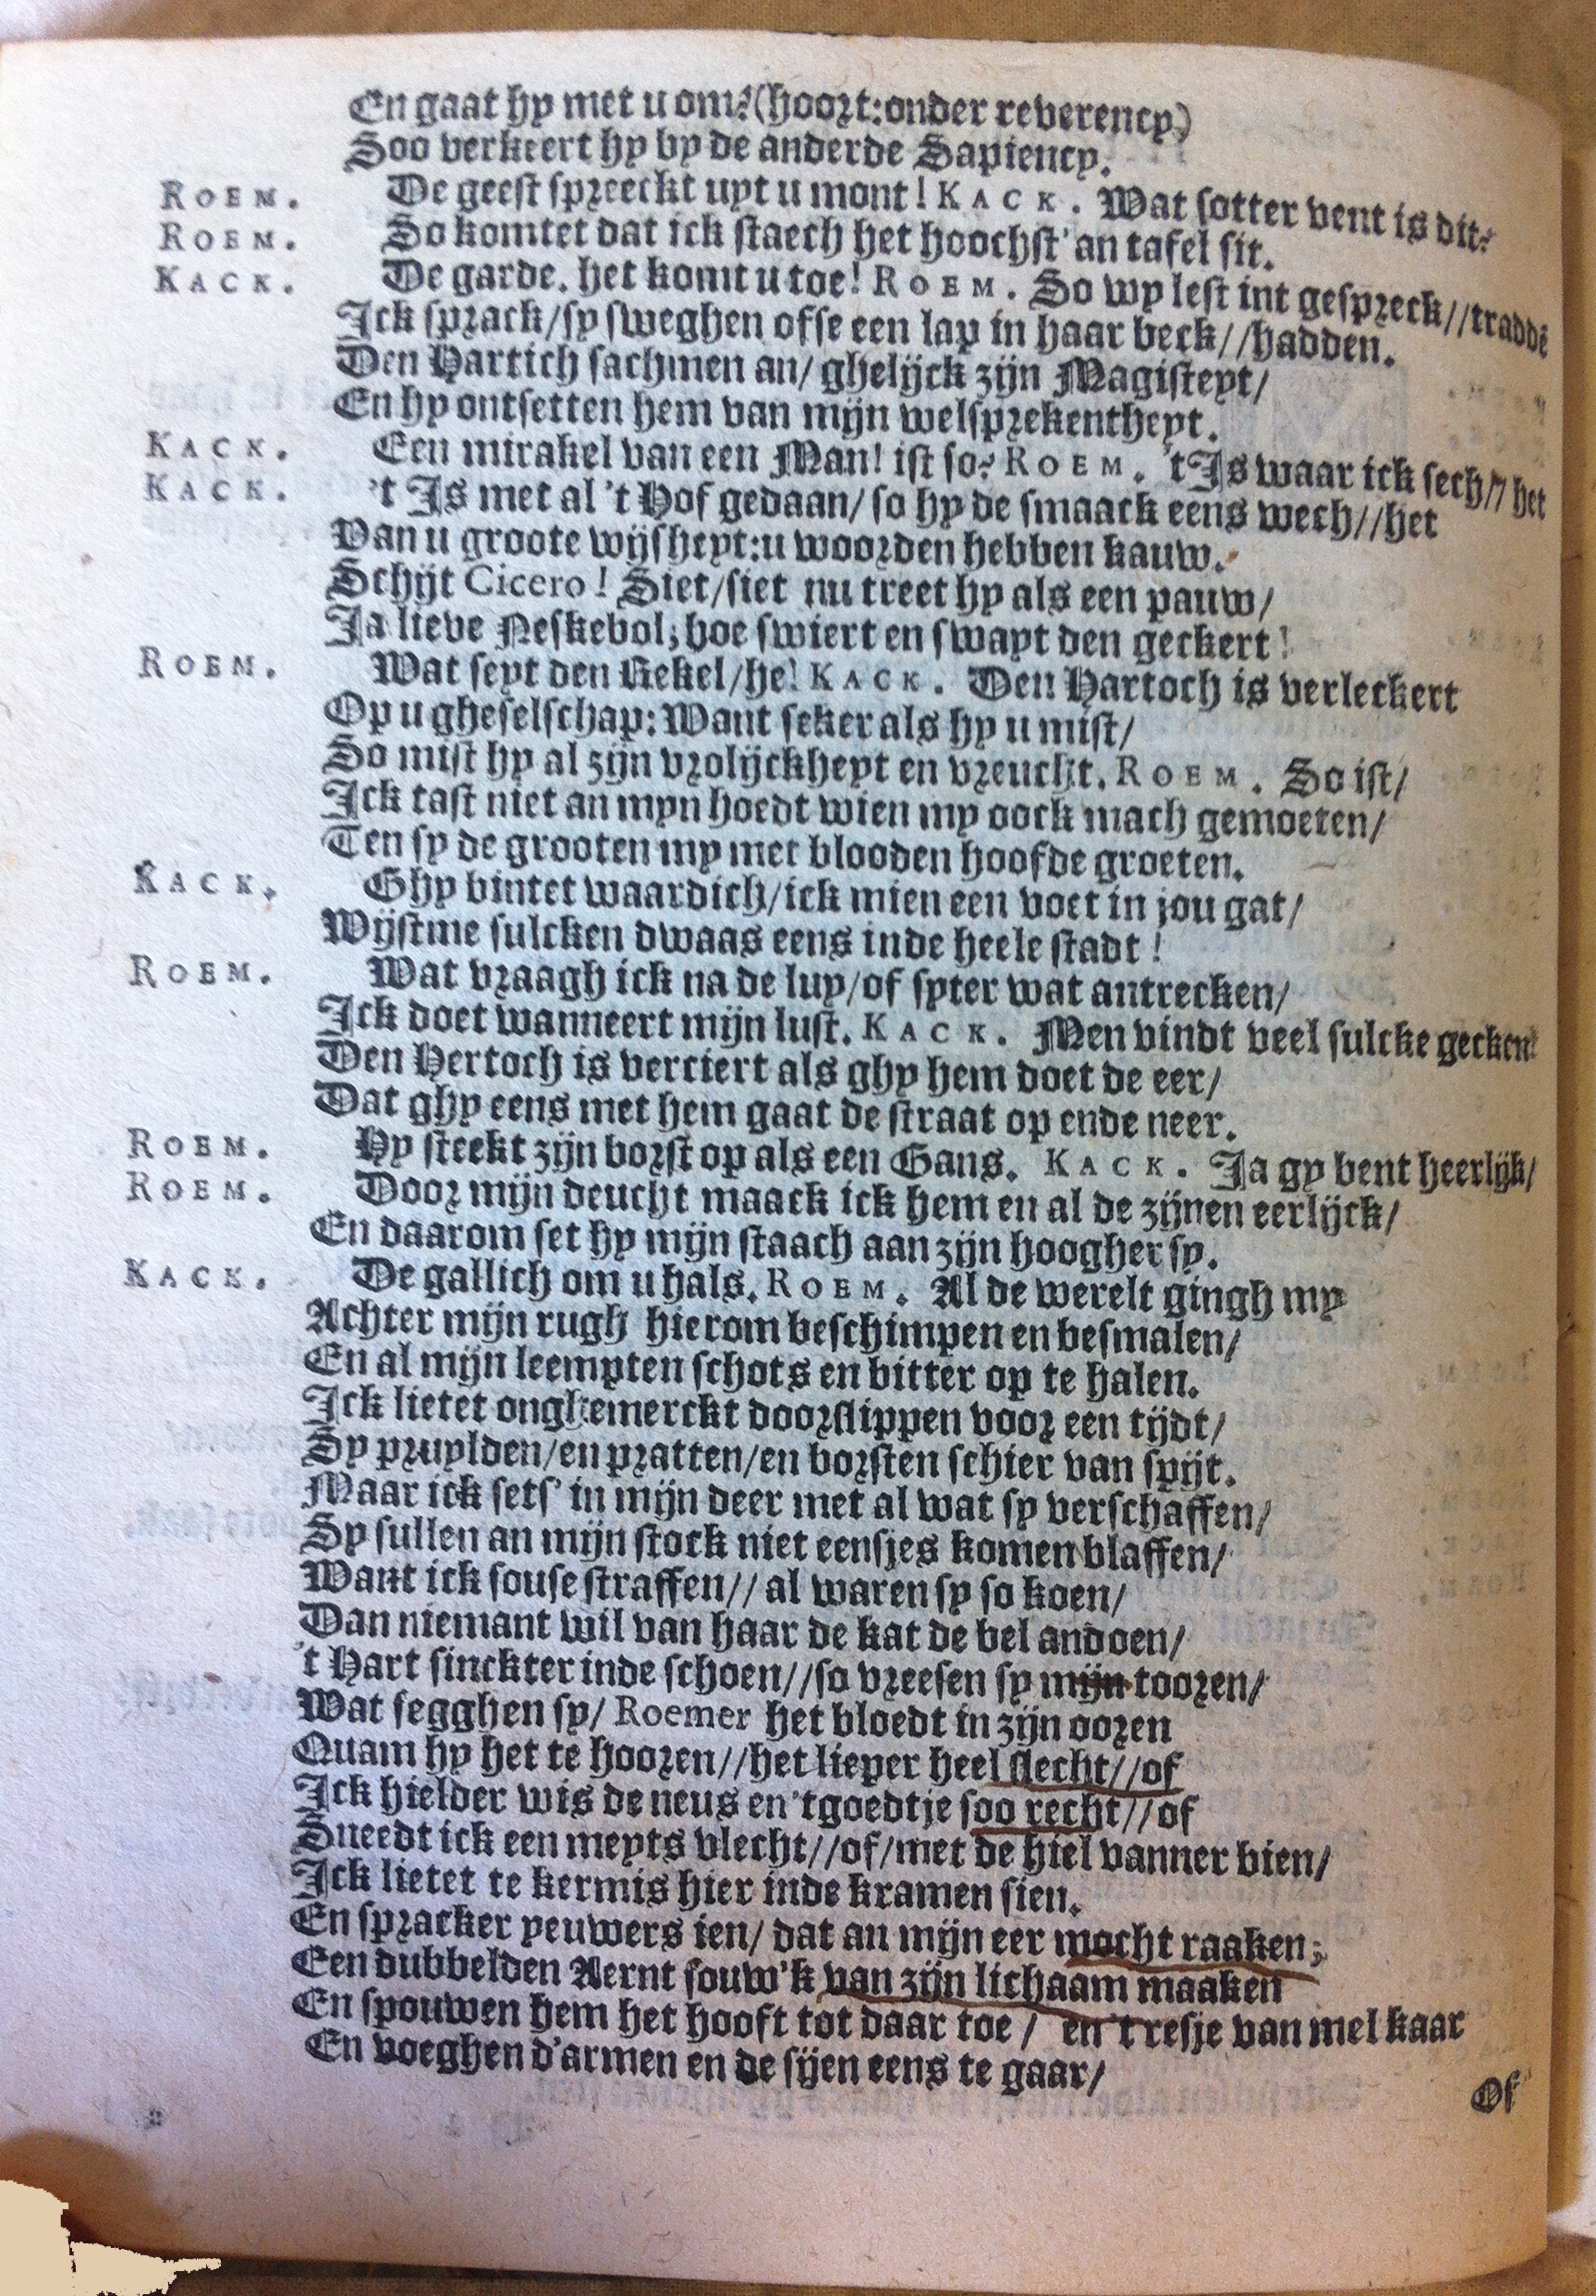 En gaat hy met u om?(hoort:onder reverency)
Soo verkeert hy by de anderde Sapiency.
ROEM. De geest spreeckt uyt u mont! KACK. Wat sotter vent is dit?
ROEM. So komtet dat ick staech het hoochst' an tafel sit.
KACK. De garde. het komt u toe! ROEM. So wy lest int gespreck//traddē
Ick sprack/sy sweghen ofse een lap in haar beck//hadden.
Den Hartich sachmen an/ ghelijck zijn Magisteyt/
En hy ontsetten hem van mijn welsprekentheyt.
KACK. Een mirakel van een Man! ist so? ROEM. 't Is waar ick sech// het
KACK. 't Is met al 't Hof gedaan/ so hy de smaack eens wech//het
Van u groote wijsheyt:u woorden hebben kauw.
Schijt Cicero! Siet/siet nu treet hy als een pauw/
Ja lieve Neskebol; hoe swiert en swayt den geckert!
ROEM. Wat seyt den Rekel/he! KACK. Den Hartoch is verleckert
Op u gheselschap: Want seker als hy u mist/
So mist hy al zijn vrolijckheyt en vreucht. ROEM. So ist/
Ick tast niet an myn hoedt wien my oock mach gemoeten/
Ten sy de grooten my met blooden hoofde groeten.
KACK. Ghy bintet waardich/ick mien een voet in jou gat/
Wijstme sulcken dwaas eens inde heele stadt!
ROEM. Wat vraagh ick na de luy/of syter wat antrecken/
Ick doet wanneert mijn lust. KACK. Men vindt veel sulcke gecken!
Den Hertoch is verciert als ghy hem doet de eer/
Dat ghy eens met hem gaat de straat op ende neer.
ROEM. Hy steekt zijn borst op als een Gans. KACK. Ja gy bent heerlijk/
ROEM. Door mijn deucht maack ick hem en al de zijnen eerlijck/
En daarom set hy mijn staach aan zijn hoogher sy.
KACK. De gallich om u hals. ROEM. Al de werelt gingh my
Achter mijn rugh hierom beschimpen en besmalen/
En al mijn leempten schots en bitter op te halen.
Ick lietet onghemerckt doorslippen voor een tijdt/
Sy pruylden/en pratten/en borsten schier van spijt.
Maar ick sets' in mijn deer met al wat sy verschaffen/
Sy sullen an mijn stock niet eensjes komen blaffen/
Want ick souse straffen// al waren sy so koen/
Dan niemant wil van haar de kat de bel andoen/
't Hart sinckter inde schoen//so vreesen sy mijn toozen/
Wat segghen sy/ Roemer het bloedt in zijn ooren
Quam hy het te hooren//het lieper heel slecht//of
Ick hielder wis de neus en 'tgoedtje soo recht//of
Sneedt ick een meyts vlecht//of/met de hiel vanner bien/
Ick lietet te kermis hier inde kramen sien.
En spracker yeuwers ien/ dat an mijn eer mocht raaken;
Een dubbelden Aernt souw'k van zijn lichaam maaken
En spouwen hem het hooft tot daar toe / en 't resje van mel kaar
En voeghen d'armen en de sijen eens te gaar/
Of